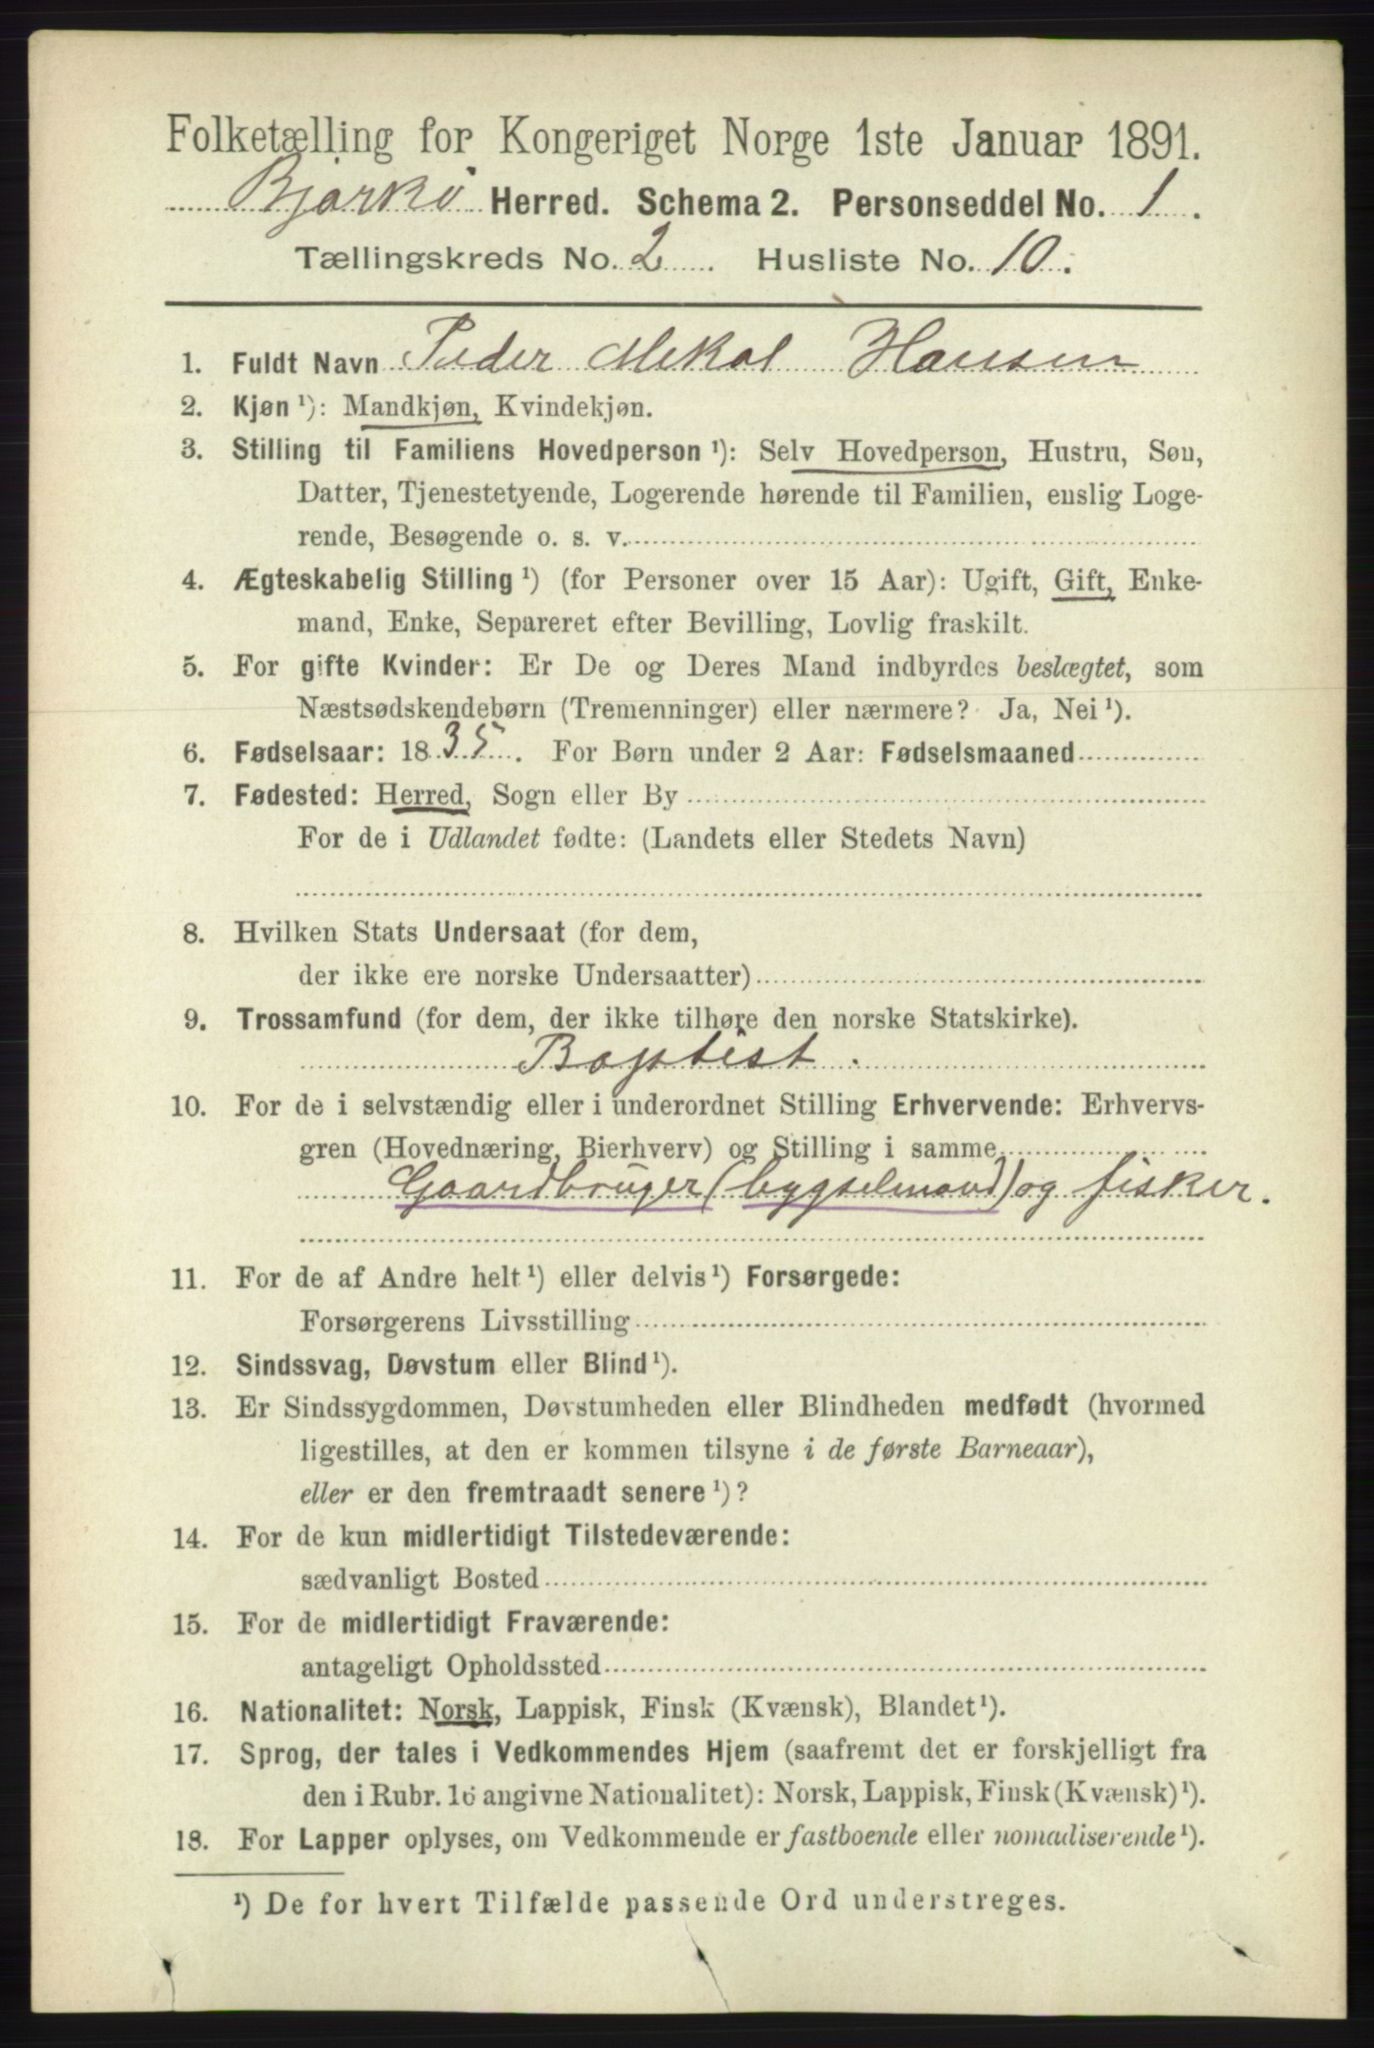 Folketælling for Kongeriget Norge 1ste Januar 1891.
Bjarkö Herred. Schema 2. Personseddel No. 1.
Tællingskreds No. 2. Husliste No. 10.
1. Fuldt Navn Peder Mekal Hansen
2. Kjøn ¹): Mandkjøn, Kvindekjøn.
3. Stilling til Familiens Hovedperson ¹): Selv Hovedperson, Hustru, Søn,
Datter, Tjenestetyende, Logerende hørende til Familien, enslig Loge-
rende, Besøgende o. s. v.
4. Ægteskabelig Stilling ¹) (for Personer over 15 Aar): Ugift, Gift, Enke-
mand, Enke, Separeret efter Bevilling, Lovlig fraskilt.
5. For gifte Kvinder: Er De og Deres Mand indbyrdes beslægtet, som
Næstsødskendebørn (Tremenninger) eller nærmere? Ja, Nei ¹).
6. Fødselsaar: 1835. For Børn under 2 Aar: Fødselsmaaned
7. Fødested: Herred, Sogn eller By
For de i Udlandet fødte: (Landets eller Stedets Navn)
8. Hvilken Stats Undersaat (for dem,
der ikke ere norske Undersaatter)
9. Trossamfund (for dem, der ikke tilhøre den norske Statskirke).
Baptist.
10. For de i selvstændig eller i underordnet Stilling Erhvervende: Erhvervs-
gren (Hovednæring, Bierhverv) og Stilling i samme
Gaardbruger (bygselmand) og fisker.
11. For de af Andre helt ¹) eller delvis ¹) Forsørgede:
Forsørgerens Livsstilling
12. Sindssvag, Døvstum eller Blind ¹).
13. Er Sindssygdommen, Døvstumheden eller Blindheden medfødt (hvormed
ligestilles, at den er kommen tilsyne i de første Barneaar),
eller er den fremtraadt senere ¹)?
14. For de kun midlertidigt Tilstedeværende:
sædvanligt Bosted
15. For de midlertidigt Fraværende:
antageligt Opholdssted
16. Nationalitet: Norsk, Lappisk, Finsk (Kvænsk), Blandet ¹).
17. Sprog, der tales i Vedkommendes Hjem (saafremt det er forskjelligt fra
den i Rubr. 16 angivne Nationalitet): Norsk, Lappisk, Finsk (Kvænsk) ¹).
18. For Lapper oplyses, om Vedkommende er fastboende eller nomadiserende ¹).
¹) De for hvert Tilfælde passende Ord understreges.